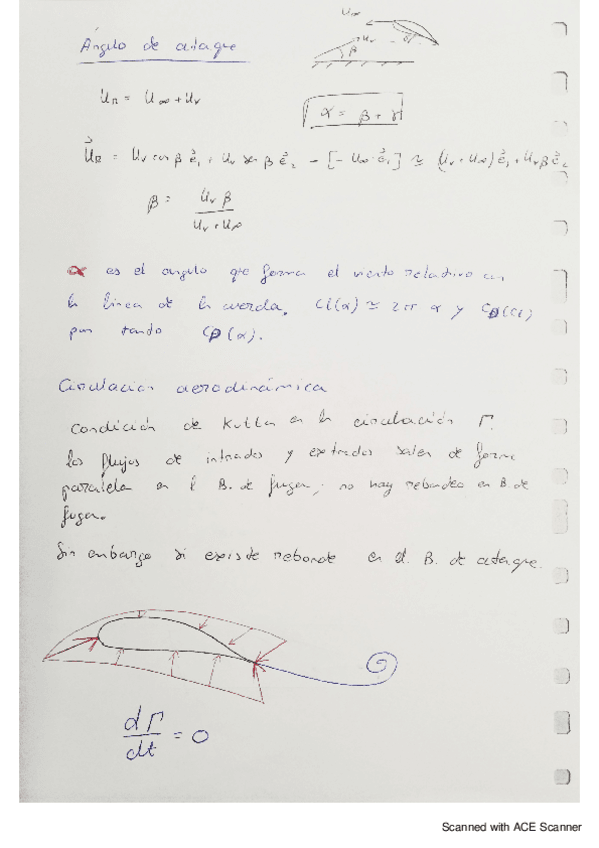 Ángulo de ataque
U∞
Uv
β
γ
UR = U∞ + Uv
α = β + γ
UR = Uv cos β e1 + Uv sen β e2 - [- U∞ e1] ≃ (Uv + U∞) e1 + Uv β e2
β = Uv β / Uv + U∞
α es el angulo que forma el viento relativo con
la linea de la cuerda. Cl(α) ≃ 2π α y CD(Cl)
por tando CD(α).
Circulacion aerodinámica
Condición de Kutta en la circulación Γ.
los flujos de intrados y extrados salen de forma
paralela en el B. de fuga, no hay rebordeo en B de
fuga.
Sin embargo si existe reborde en el B. de ataque.
dΓ/dt = 0
Scanned with ACE Scanner